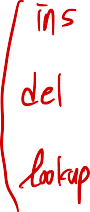 ins
del
lookup